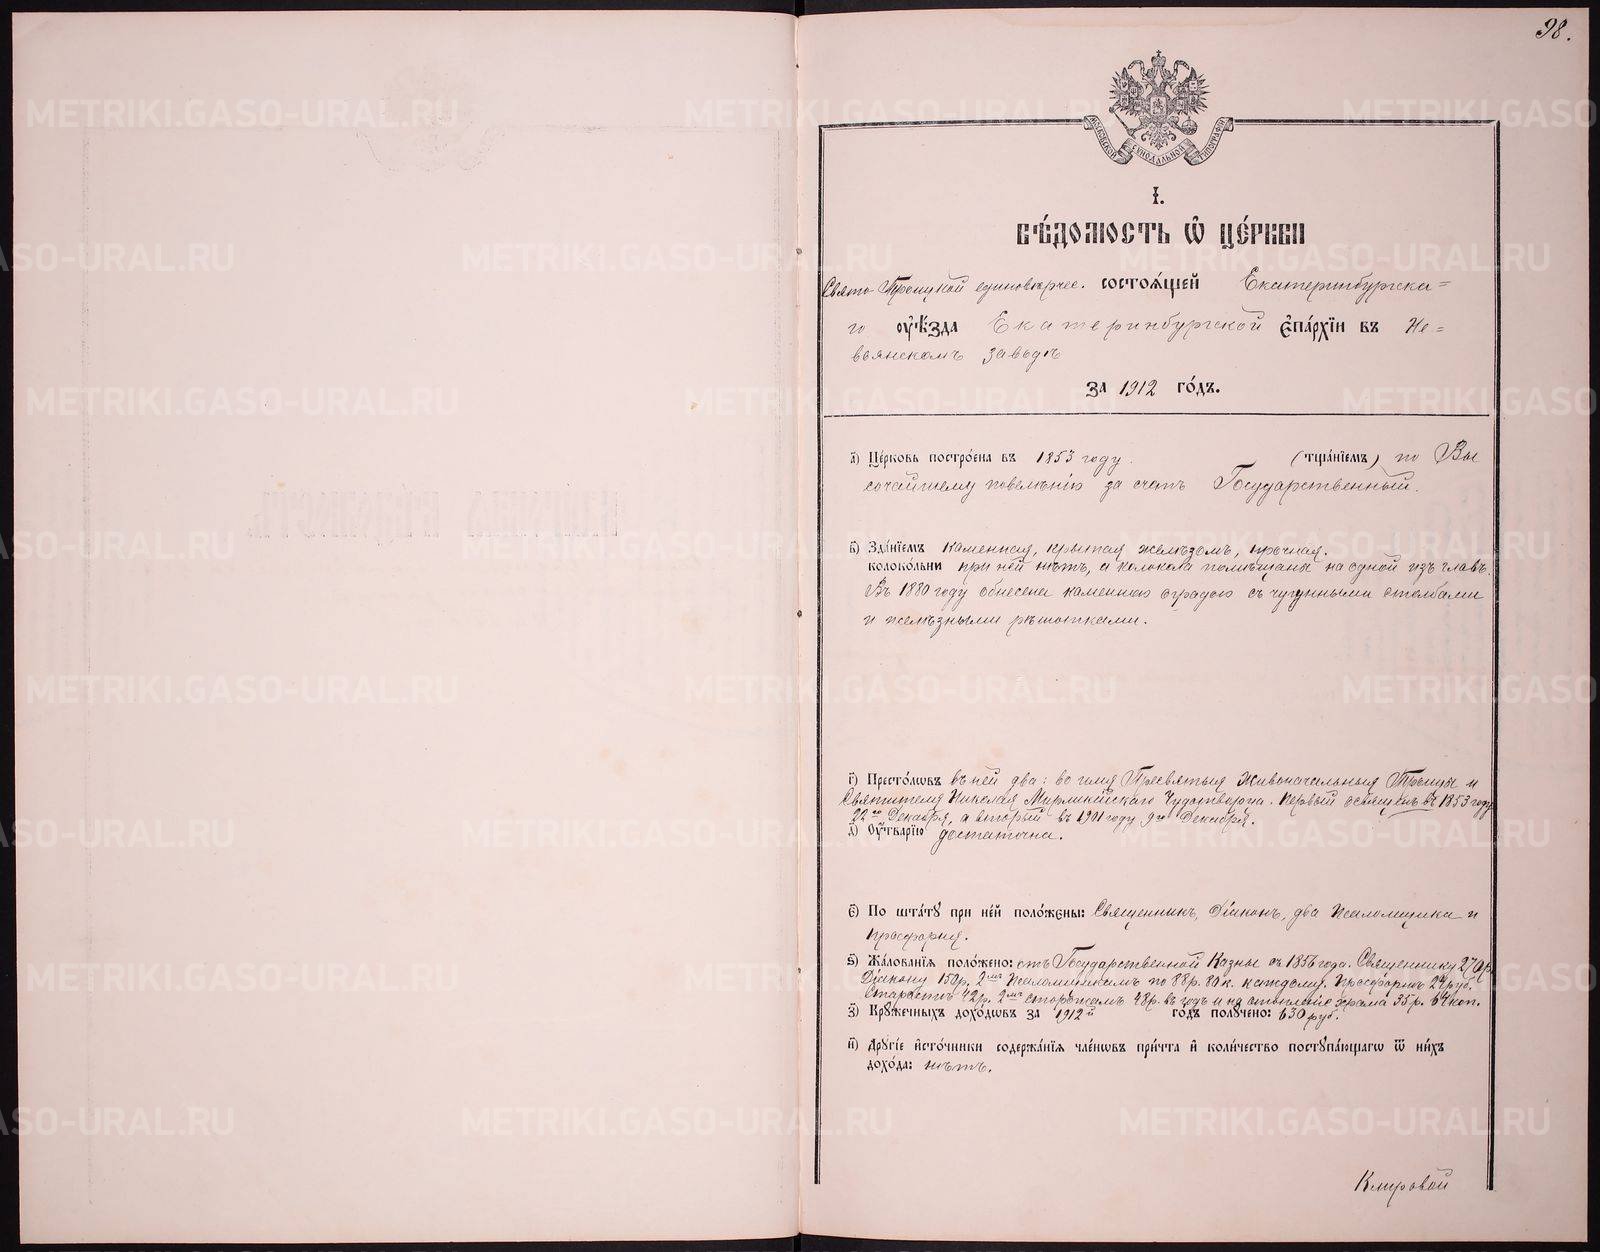 98.
МОСКОВСКОЙ СѴНОДАЛЬНОЙ ТИПОГРАФІИ
І.
ВѢ́ДОМОСТЬ Ѡ ЦЕ́РКВИ
Свято-Троицкой единовѣрчес. состоѧ́щей Екатеринбургска=
го оуѣ́зда Екатеринбургской єпа́рхїи въ Не=
вьянскомъ заводѣ
за 1912 го́дъ.
а҃) Це́рковь постро́ена въ 1853 году. (тща́нїемъ) по Вы
сочайшему повелѣнію за счетъ Государственный.
в҃) Зда́нїемъ каменная, крытая желѣзомъ, прочная.
колоко́льни при ней нѣтъ, а колокола помѣщаны на одной изъ главъ.
Въ 1880 году обнесена каменною оградою съ чугунными столбами
и желѣзными рѣшотками.
г҃) Престо́лѡвъ въ ней два: во имя Пресвятыя Живоначальныя Троицы и
Святителя Николая Мирликійскаго Чудотворца. Первый освященъ въ 1853 году
22го Декабря, а вторый въ 1901 году 9го Декабря.
д҃) Оу҆́тварїю достаточна.
є҃) По шта́тꙋ при не́й поло́жєны: Священникъ, Діаконъ, два Псаломщика и
просфорня.
ѕ҃) Жа́лованїѧ поло́жено: отъ Государственной Казны съ 1856 года. Священнику 270 р.
Діакону 150 р. 2мъ Псаломщикамъ по 88 р. 80 к. каждому. Просфорнѣ 24 руб.
Старостѣ 42 р. 2мъ сторожамъ 48 р. въ годъ и на отопленіе храма 35 р. 64 коп.
з҃) Крꙋ́жечныхъ дохо́дѡвъ за 1912й го́дъ полꙋ́чено: 630 руб.
и҃) Дрꙋгі́е и҆сто́чники содержа́нїѧ чле́нѡвъ при́чта и҆ коли́чество постꙋпа́ющагѡ ѿ ни́хъ
дохо́да: нѣтъ.
Клировой
METRIKI.GASO-URAL.RU